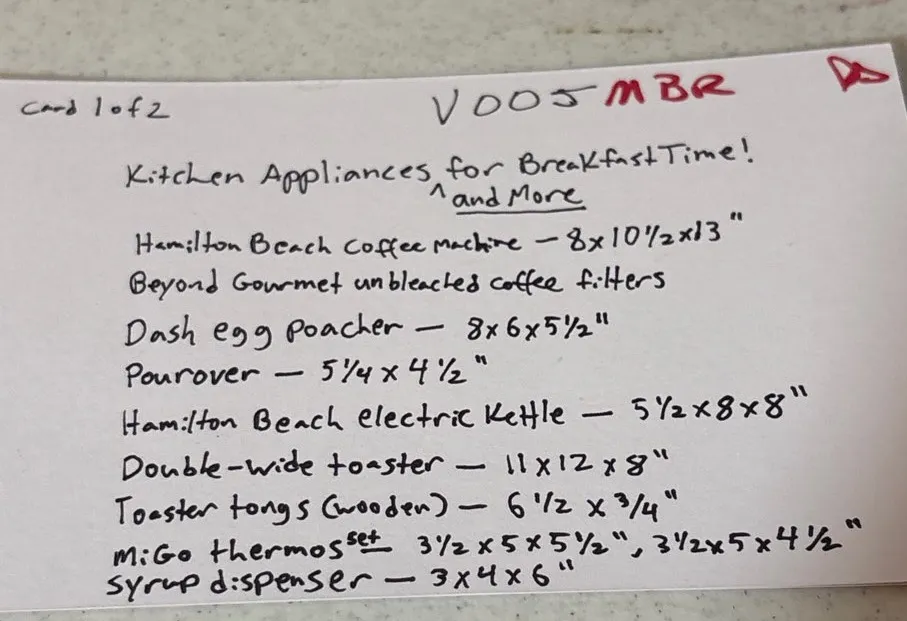 Card 1 of 2
V005 MBR
Kitchen Appliances for BreakfastTime!
^ and More
Hamilton Beach coffee machine – 8x10 1/2 x13"
Beyond Gourmet unbleached coffee filters
Dash egg poacher – 8x6x5 1/2"
Pourover – 5 1/4 x 4 1/2"
Hamilton Beach electric Kettle – 5 1/2 x 8 x 8"
Double-wide toaster – 11x12 x 8"
Toaster tongs (wooden) – 6 1/2 x 3/4"
MiGo thermos set 3 1/2 x 5 x 5 1/2", 3 1/2 x 5 x 4 1/2"
syrup dispenser – 3x4x6"